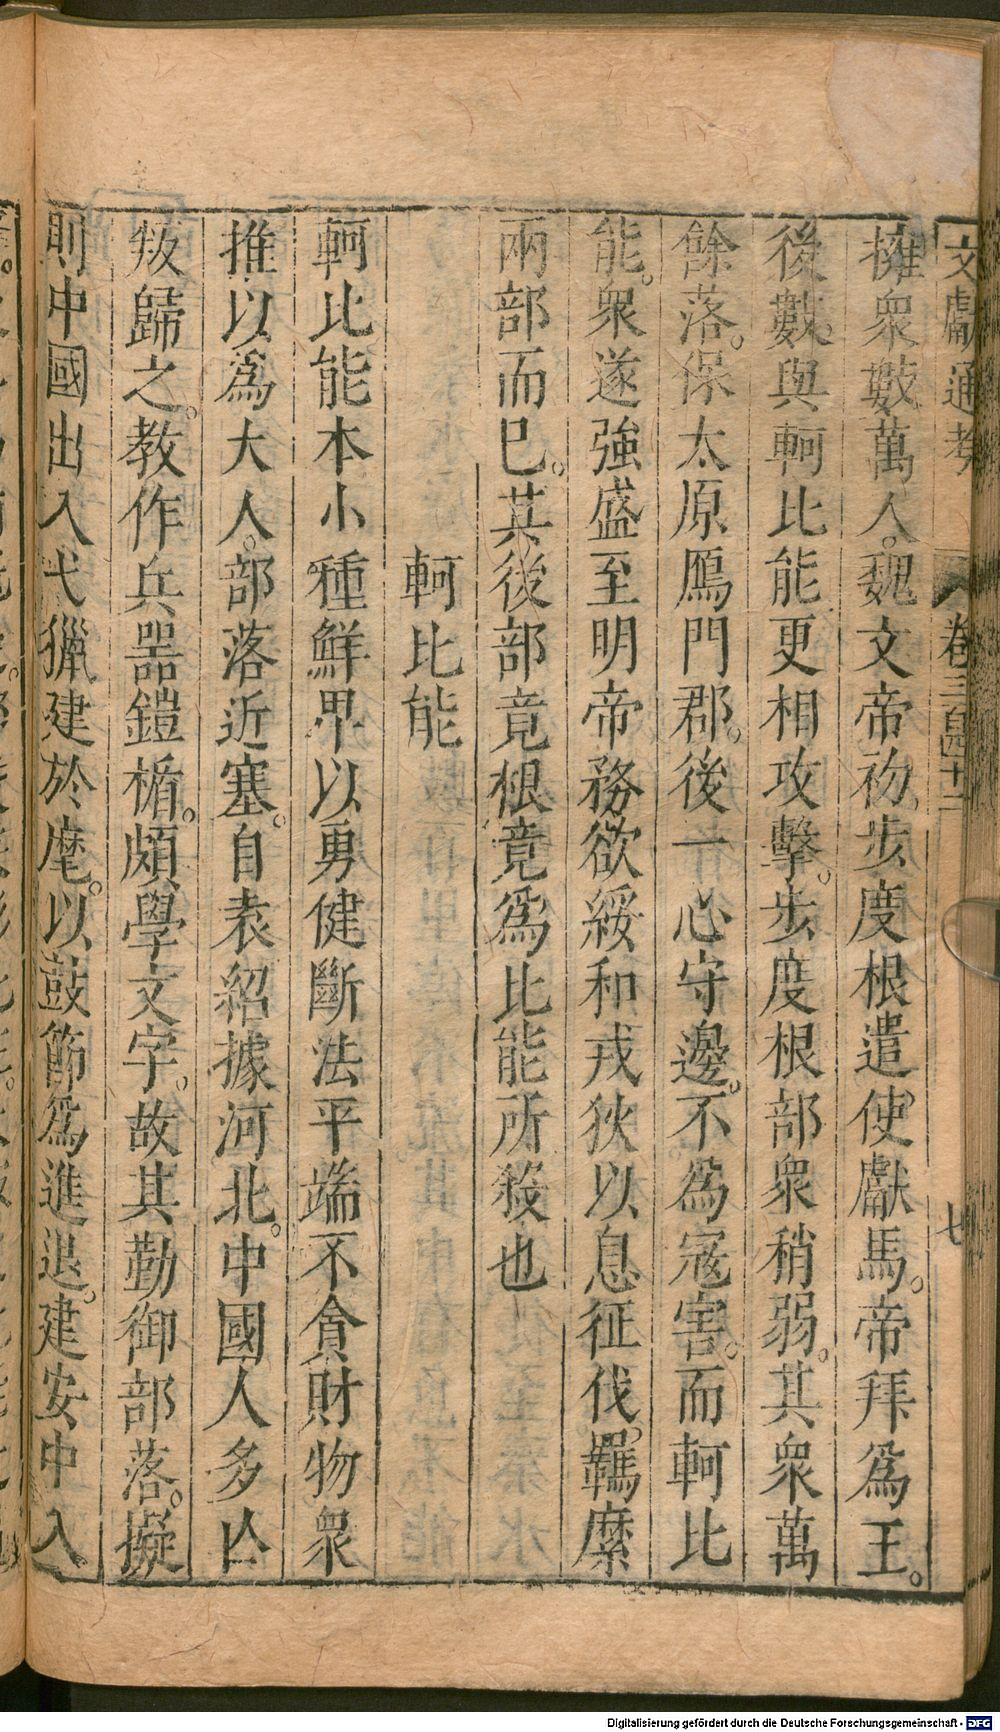 文獻通考 卷三百四十二 七
擁衆數萬人。魏文帝初。步度根遣使獻馬。帝拜爲王。
後數與軻比能更相攻擊。步度根部衆稍弱。其衆萬
餘落。保太原鴈門郡。後一心守邊。不爲寇害。而軻比
能。衆遂強盛至明帝務欲綏和戎狄以息征伐。羈縻
兩部而已。其後部竟根竟爲比能所殺也
軻比能
軻比能本小種鮮卑以勇健斷法平端不貪財物衆
推以爲大人。部落近塞。自袁紹據河北。中國人多亾
叛歸之。教作兵噐鎧楯。頗學文字。故其勤御部落。擬
則中國出入弋獵建於麾。以鼓節爲進退。建安中入
Digitalisierung gefördert durch die Deutsche Forschungsgemeinschaft - DFG